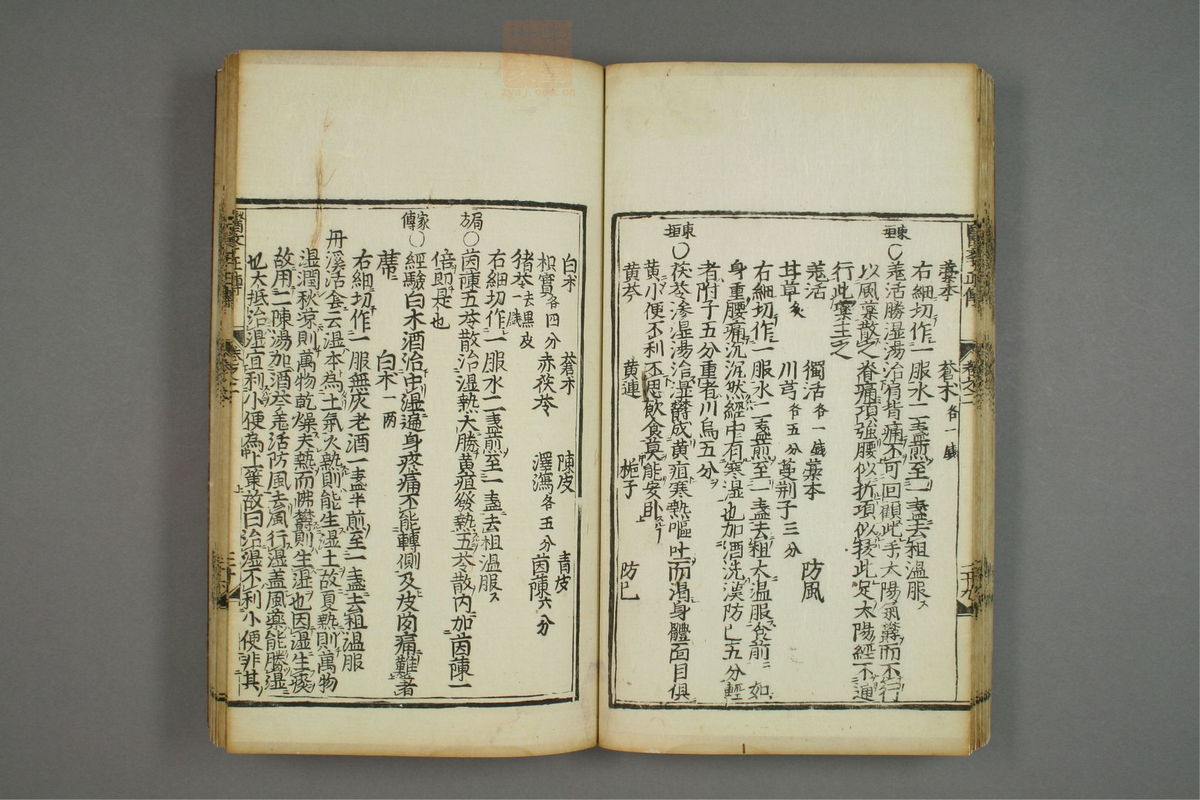 藁本 蒼朮各一錢
右細切作一服水二盞煎至一盞去柤温服
東垣○羗活勝湿湯治肩背痛不可回顧此手太陽氣欝而不行
以風藥散之脊痛項強腰似折項似拔此足太陽經不通
行此藥主之
羗活 獨活各一錢 藁本 防風
甘草炙 川芎各五分 蔓荆子三分
右細切作一服水二盞煎至一盞去柤大温服食前如
身重腰痛沉沉然經中有寒湿也加酒洗漢防已五分輕
者附子五分重者川烏五分
東垣○茯苓滲湿湯治湿欝成黄疸寒熱嘔吐而渇身體面目俱
黄小便不利不思飲食莫能安卧
黄芩 黄連 梔子 防已
白朮 蒼朮 陳皮 青皮
枳實各四分 赤茯苓 澤瀉各五分 茵蔯六分
猪苓一錢去黒皮
右細切作一服水二盞煎至一盞去柤温服
局方○茵蔯五苓散治湿熱大勝黄疸發熱五苓散内加茵蔯一
倍即是也
家傳○經驗白朮酒治中湿遍身疼痛不能轉側及皮肉痛難著
蓆
白朮一两
右細切作一服無灰老酒一盞半煎至一盞去柤温服
丹溪活套云湿本為土氣火熱則能生湿土故夏熱則萬物
湿潤秋涼則萬物乾燥夫熱而怫欝則生湿也因湿生痰
故用二陳湯加酒芩羗活防風去風行湿蓋風藥能勝湿
也大抵治湿宜利小便為上策故曰治湿不利小便非其